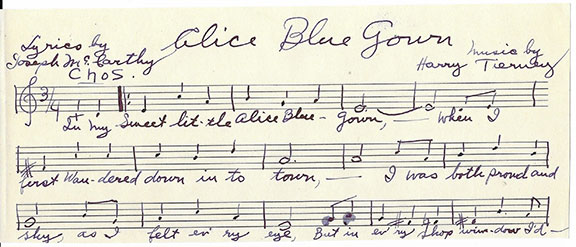 Alice Blue Gown
Lyrics by
Joseph Mc Carthy
Music by
Harry Tierney
Chos.
3/4
In my Sweet lit-tle Alice Blue-Gown, — when I
first Wan-dered down in to town, — I was both proud and
shy, as I felt ev'ry eye, But in ev'ry shop win-dow I'd-